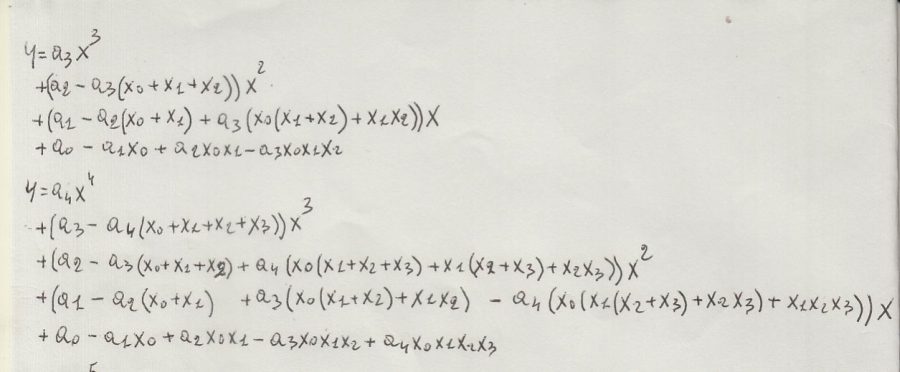 y=a₃x³
+(a₂-a₃(x₀+x₁+x₂))x²
+(a₁-a₂(x₀+x₁)+a₃(x₀(x₁+x₂)+x₁x₂))x
+a₀-a₁x₀+a₂x₀x₁-a₃x₀x₁x₂
y=a₄x⁴
+(a₃-a₄(x₀+x₁+x₂+x₃))x³
+(a₂-a₃(x₀+x₁+x₂)+a₄(x₀(x₁+x₂+x₃)+x₁(x₂+x₃)+x₂x₃))x²
+(a₁-a₂(x₀+x₁) +a₃(x₀(x₁+x₂)+x₁x₂) -a₄(x₀(x₁(x₂+x₃)+x₂x₃)+x₁x₂x₃))x
+a₀-a₁x₀+a₂x₀x₁-a₃x₀x₁x₂+a₄x₀x₁x₂x₃